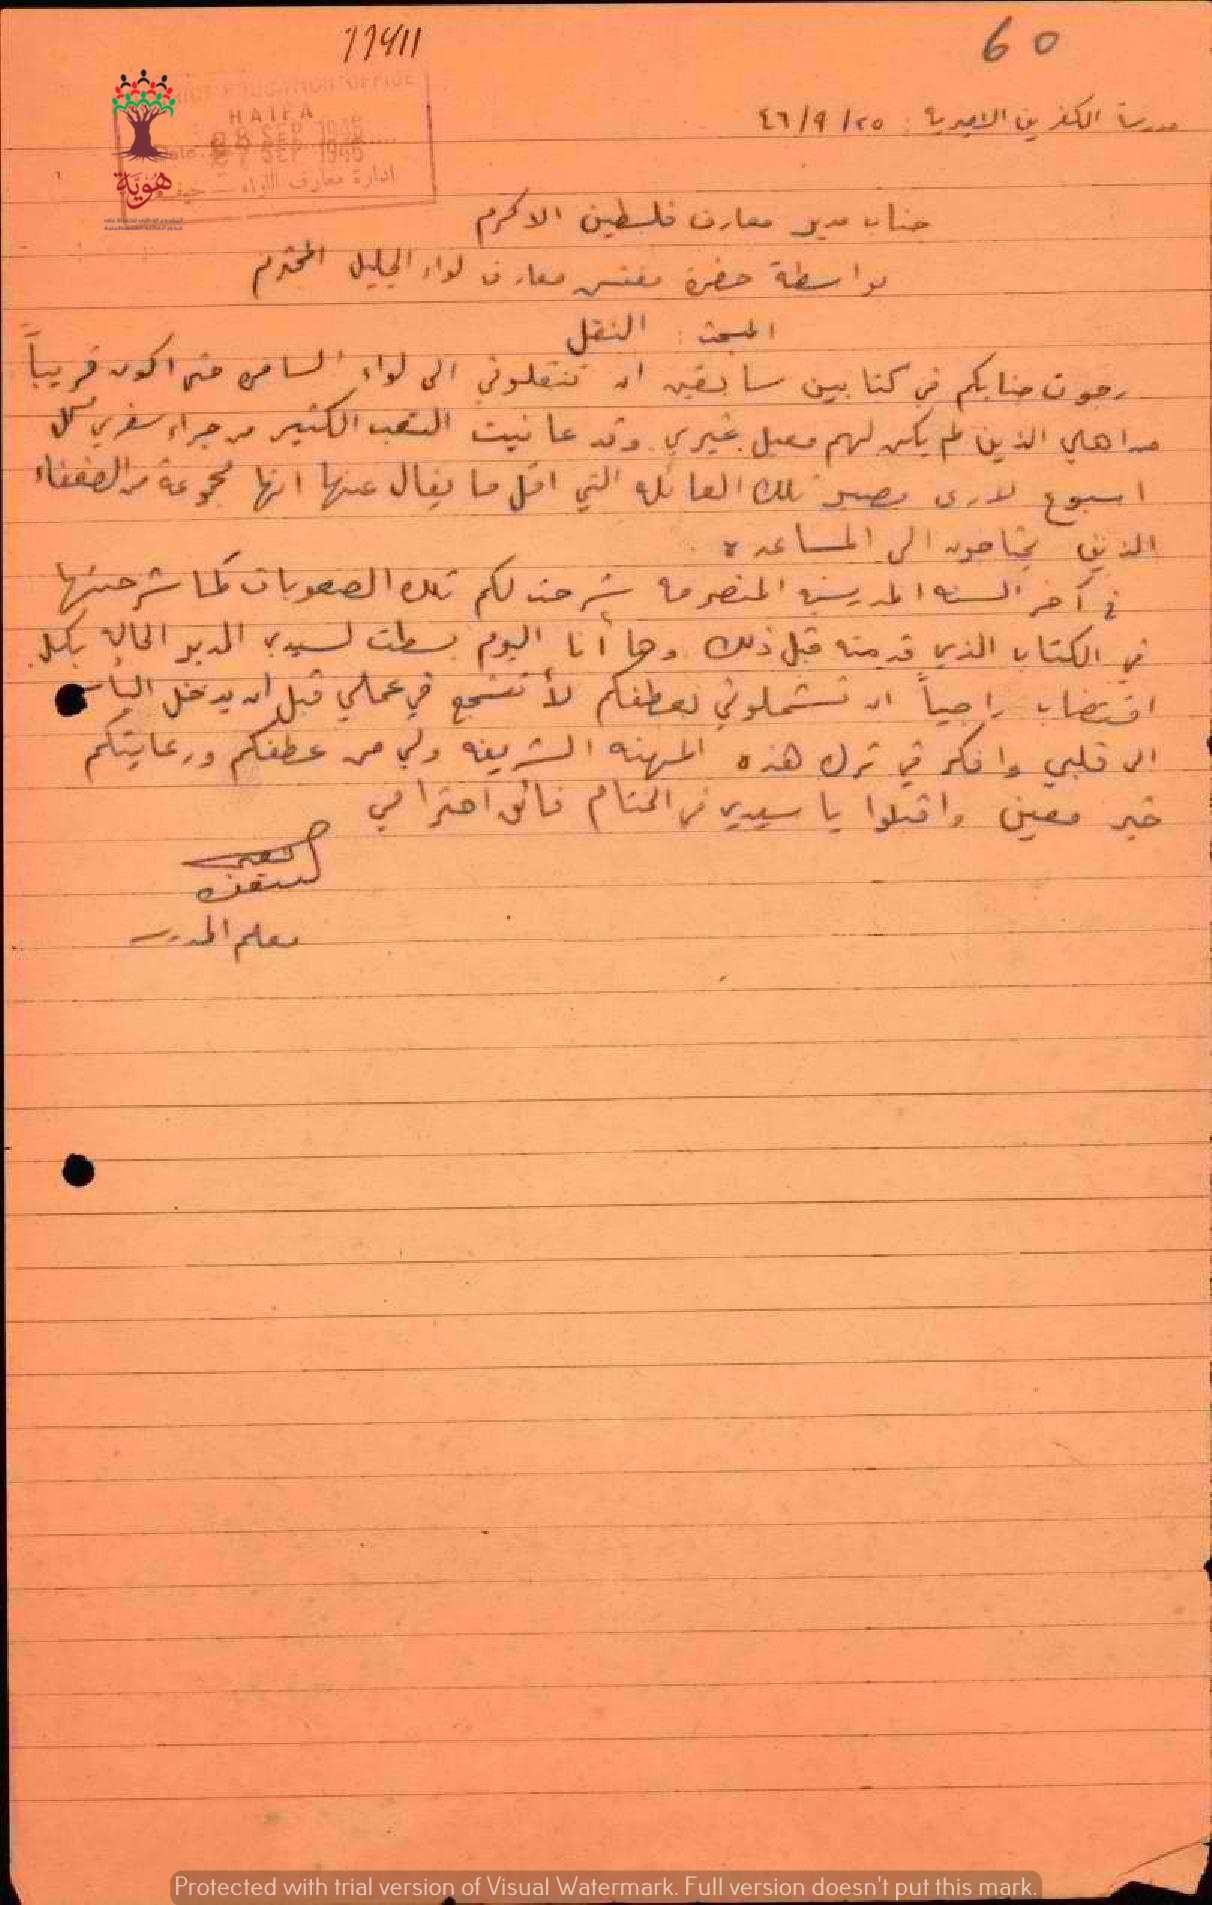 11411
60
DISTRICT EDUCATION OFFICE
HAIFA
Date
28 SEP 1946
27 SEP 1946
ادارة معارف اللواء — حيفا
هُوِيَّة
مدرسة الكفرين الاميرية : ٢٥/٩/٤٦
جناب مدير معارف فلسطين الاكرم
بواسطة حضرة مفتش معارف لواء الجليل المحترم
المبحث : النقل
رجوت جنابكم في كتابين سابقين ان تنقلوني الى لواء السامره حتى اكون قريباً
من اهلي الذين لم يكن لهم معيل غيري وقد عانيت التعب الكثير من جراء سفري كل
اسبوع لارى مصير تلك العائله التي اقل ما يقال عنها انها مجموعة من الضعفاء
الذين يحتاجون الى المساعده .
في آخر السنه المدرسيه المنصرمه شرحت لكم تلك الصعوبات كما شرحتها
في الكتاب الذي قدمته قبل ذلك وها أنا اليوم بسطت لسيدي المدير الحاله بكل
اقتضاب راجياً ان تشملوني بعطفكم لأتشجع في عملي قبل ان يدخل اليأس
الى قلبي وافكر في ترك هذه المهنه الشريفه ولي من عطفكم ورعايتكم
خير معين واقبلوا يا سيدي في الختام فائق احترامي
معلم المدرسه
Protected with trial version of Visual Watermark. Full version doesn't put this mark.